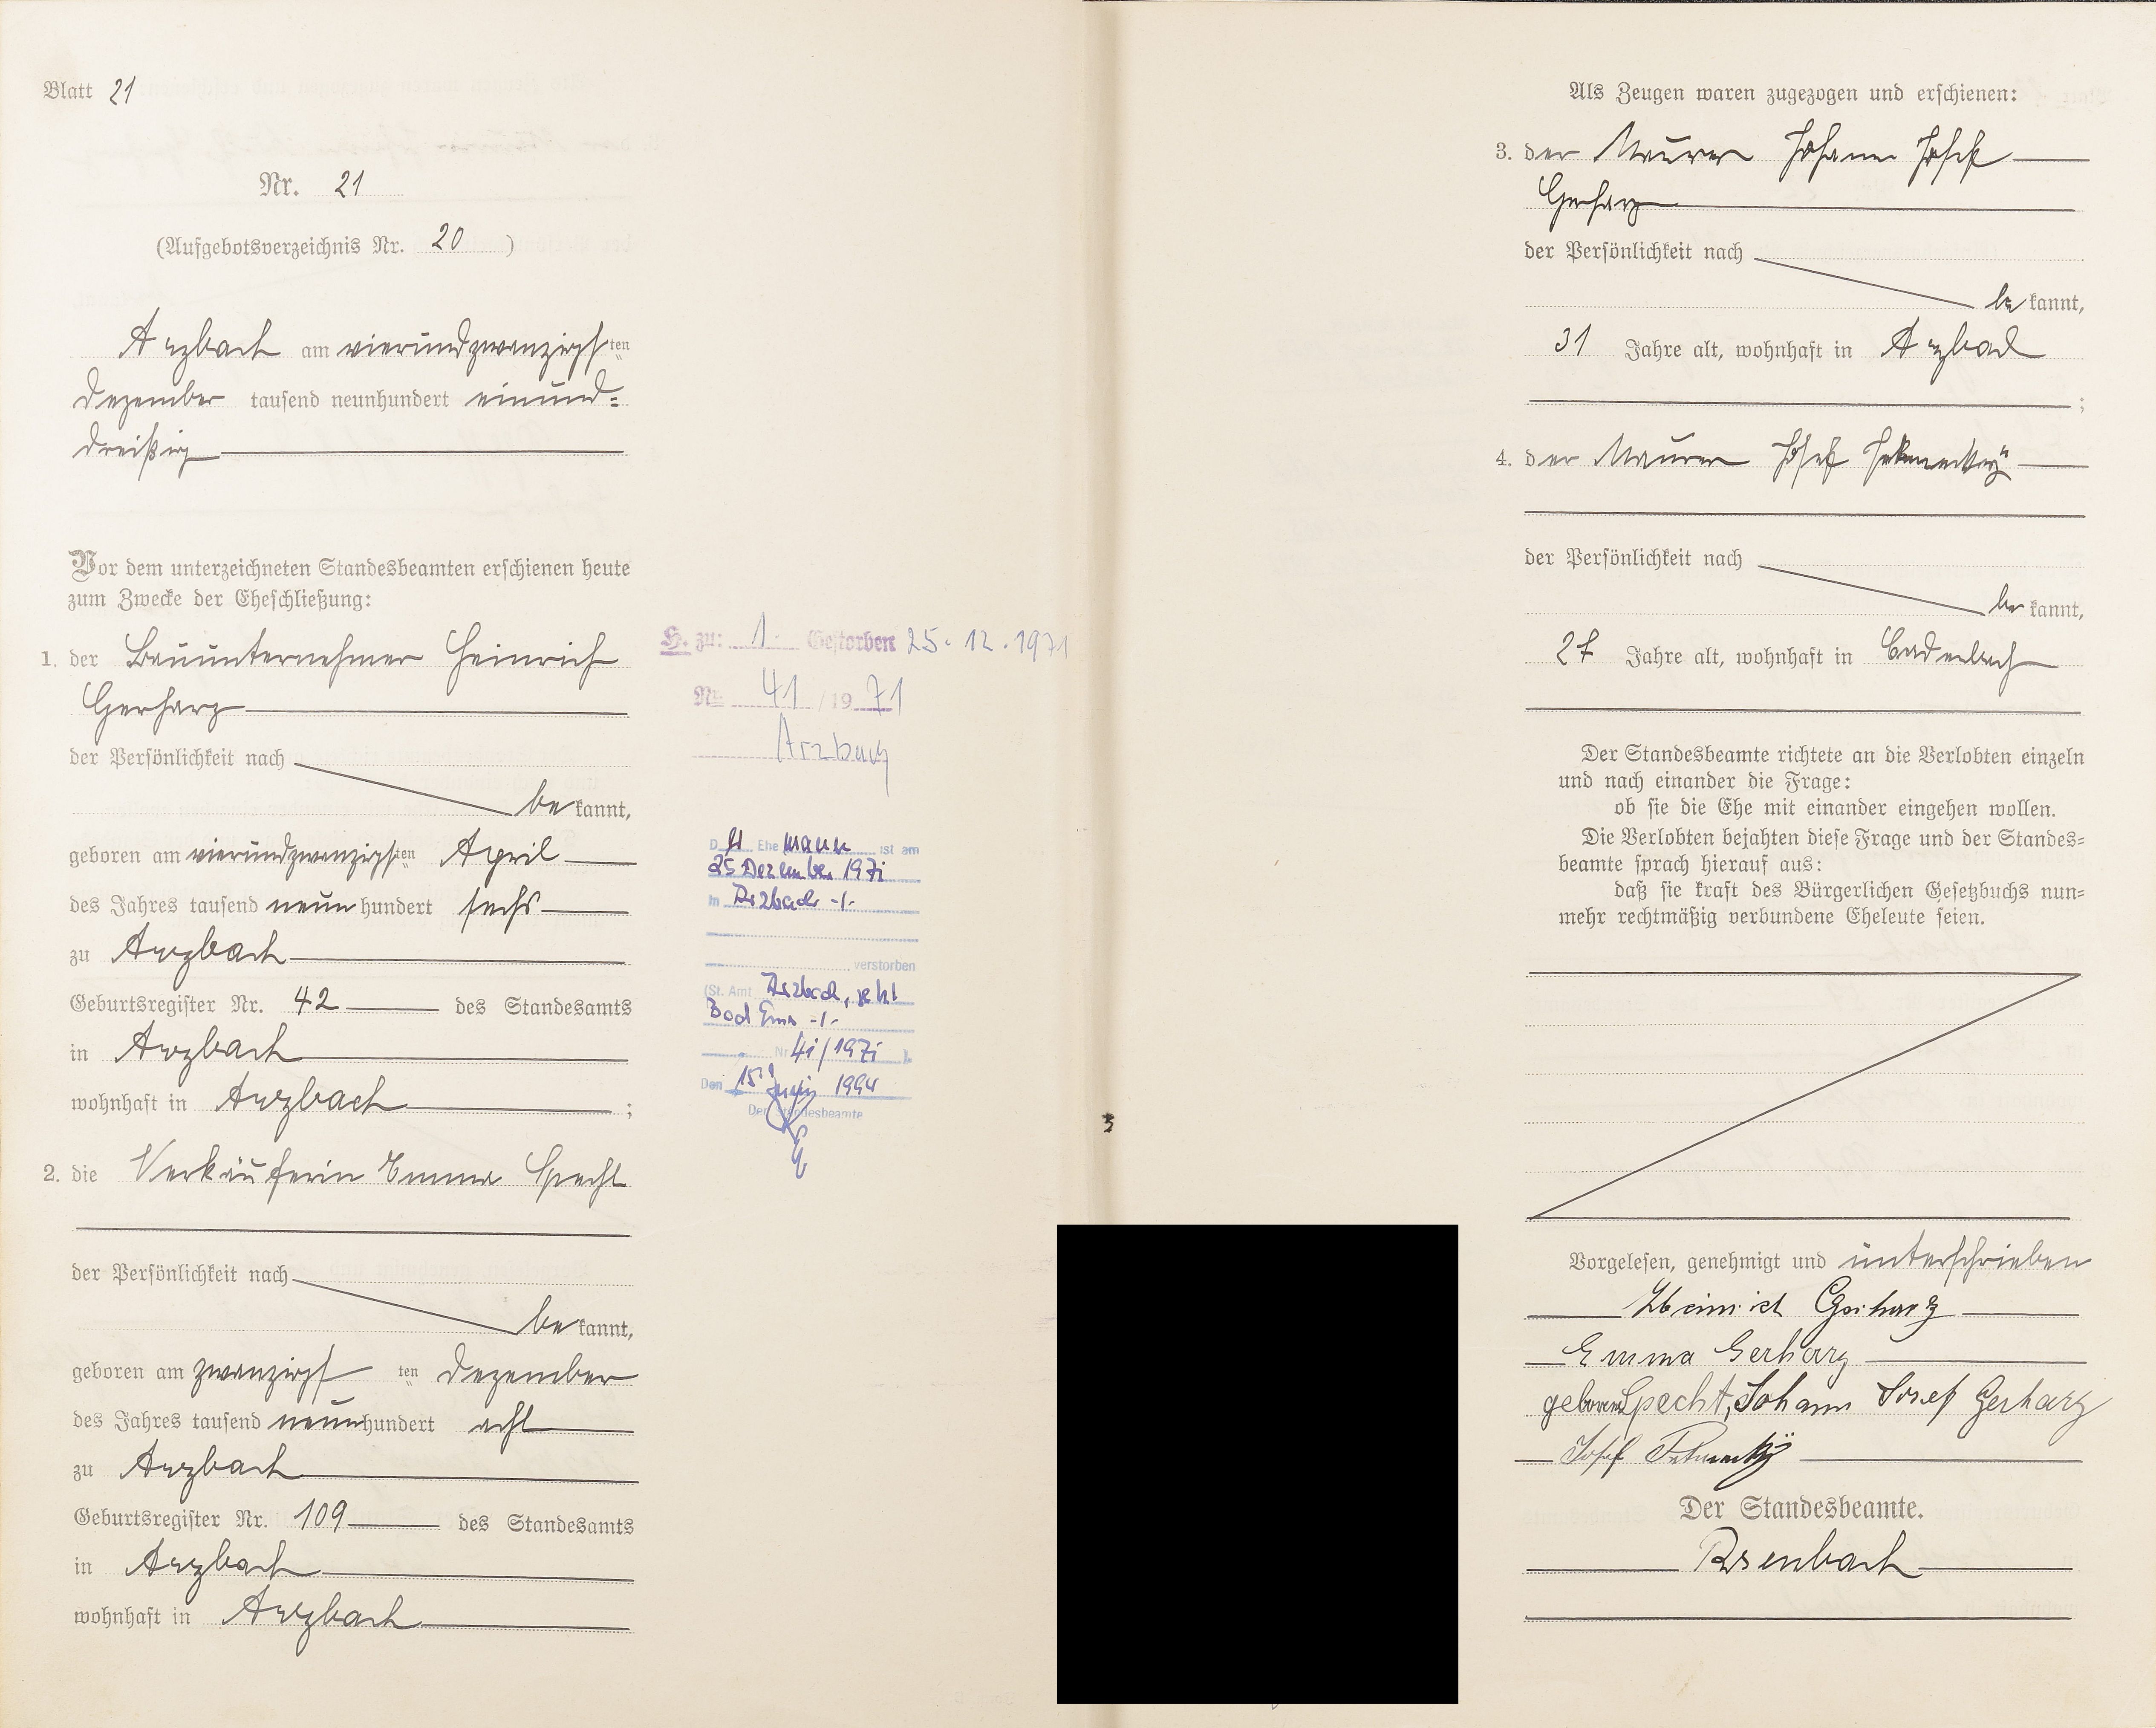 Blatt 21
Nr. 21
(Aufgebotsverzeichnis Nr. 20)
Arzbach am vierundzwanzigsten
Dezember tausend neunhundert einund-
dreißig
Vor dem unterzeichneten Standesbeamten erschienen heute
zum Zwecke der Eheschließung:
1. der Bauunternehmer Heinrich
Gerharz
der Persönlichkeit nach
bekannt,
geboren am vierundzwanzigsten April
des Jahres tausend neunhundert sechs
zu Arzbach
Geburtsregister Nr. 42 des Standesamts
in Arzbach
wohnhaft in Arzbach;
2. die Verkäuferin Emma Specht
der Persönlichkeit nach
bekannt,
geboren am zwanzigsten Dezember
des Jahres tausend neunhundert acht
zu Arzbach
Geburtsregister Nr. 109 des Standesamts
in Arzbach
wohnhaft in Arzbach
H. zu: 1. Gestorben 25.12.1971
Nr. 41/1971
Arzbach
Der Ehemann ist am
25 Dezember 1971
in Arzbach -/-
verstorben
(St. Amt Arzbach, jetzt
Bad Ems -/-
Nr. 41/1971).
Den 15. 1994
Der Standesbeamte
Als Zeugen waren zugezogen und erschienen:
3. der Maurer Johann Josef
Gerharz
der Persönlichkeit nach
bekannt,
31 Jahre alt, wohnhaft in Arzbach
;
4. der Maurer Josef
der Persönlichkeit nach
bekannt,
27 Jahre alt, wohnhaft in Cadenbach
Der Standesbeamte richtete an die Verlobten einzeln
und nach einander die Frage:
ob sie die Ehe mit einander eingehen wollen.
Die Verlobten bejahten diese Frage und der Standes-
beamte sprach hierauf aus:
daß sie kraft des Bürgerlichen Gesetzbuchs nun-
mehr rechtmäßig verbundene Eheleute seien.
Vorgelesen, genehmigt und unterschrieben
Heinrich Gerharz
Emma Gerharz
geborene Specht, Johann Josef Gerharz
Josef
Der Standesbeamte.